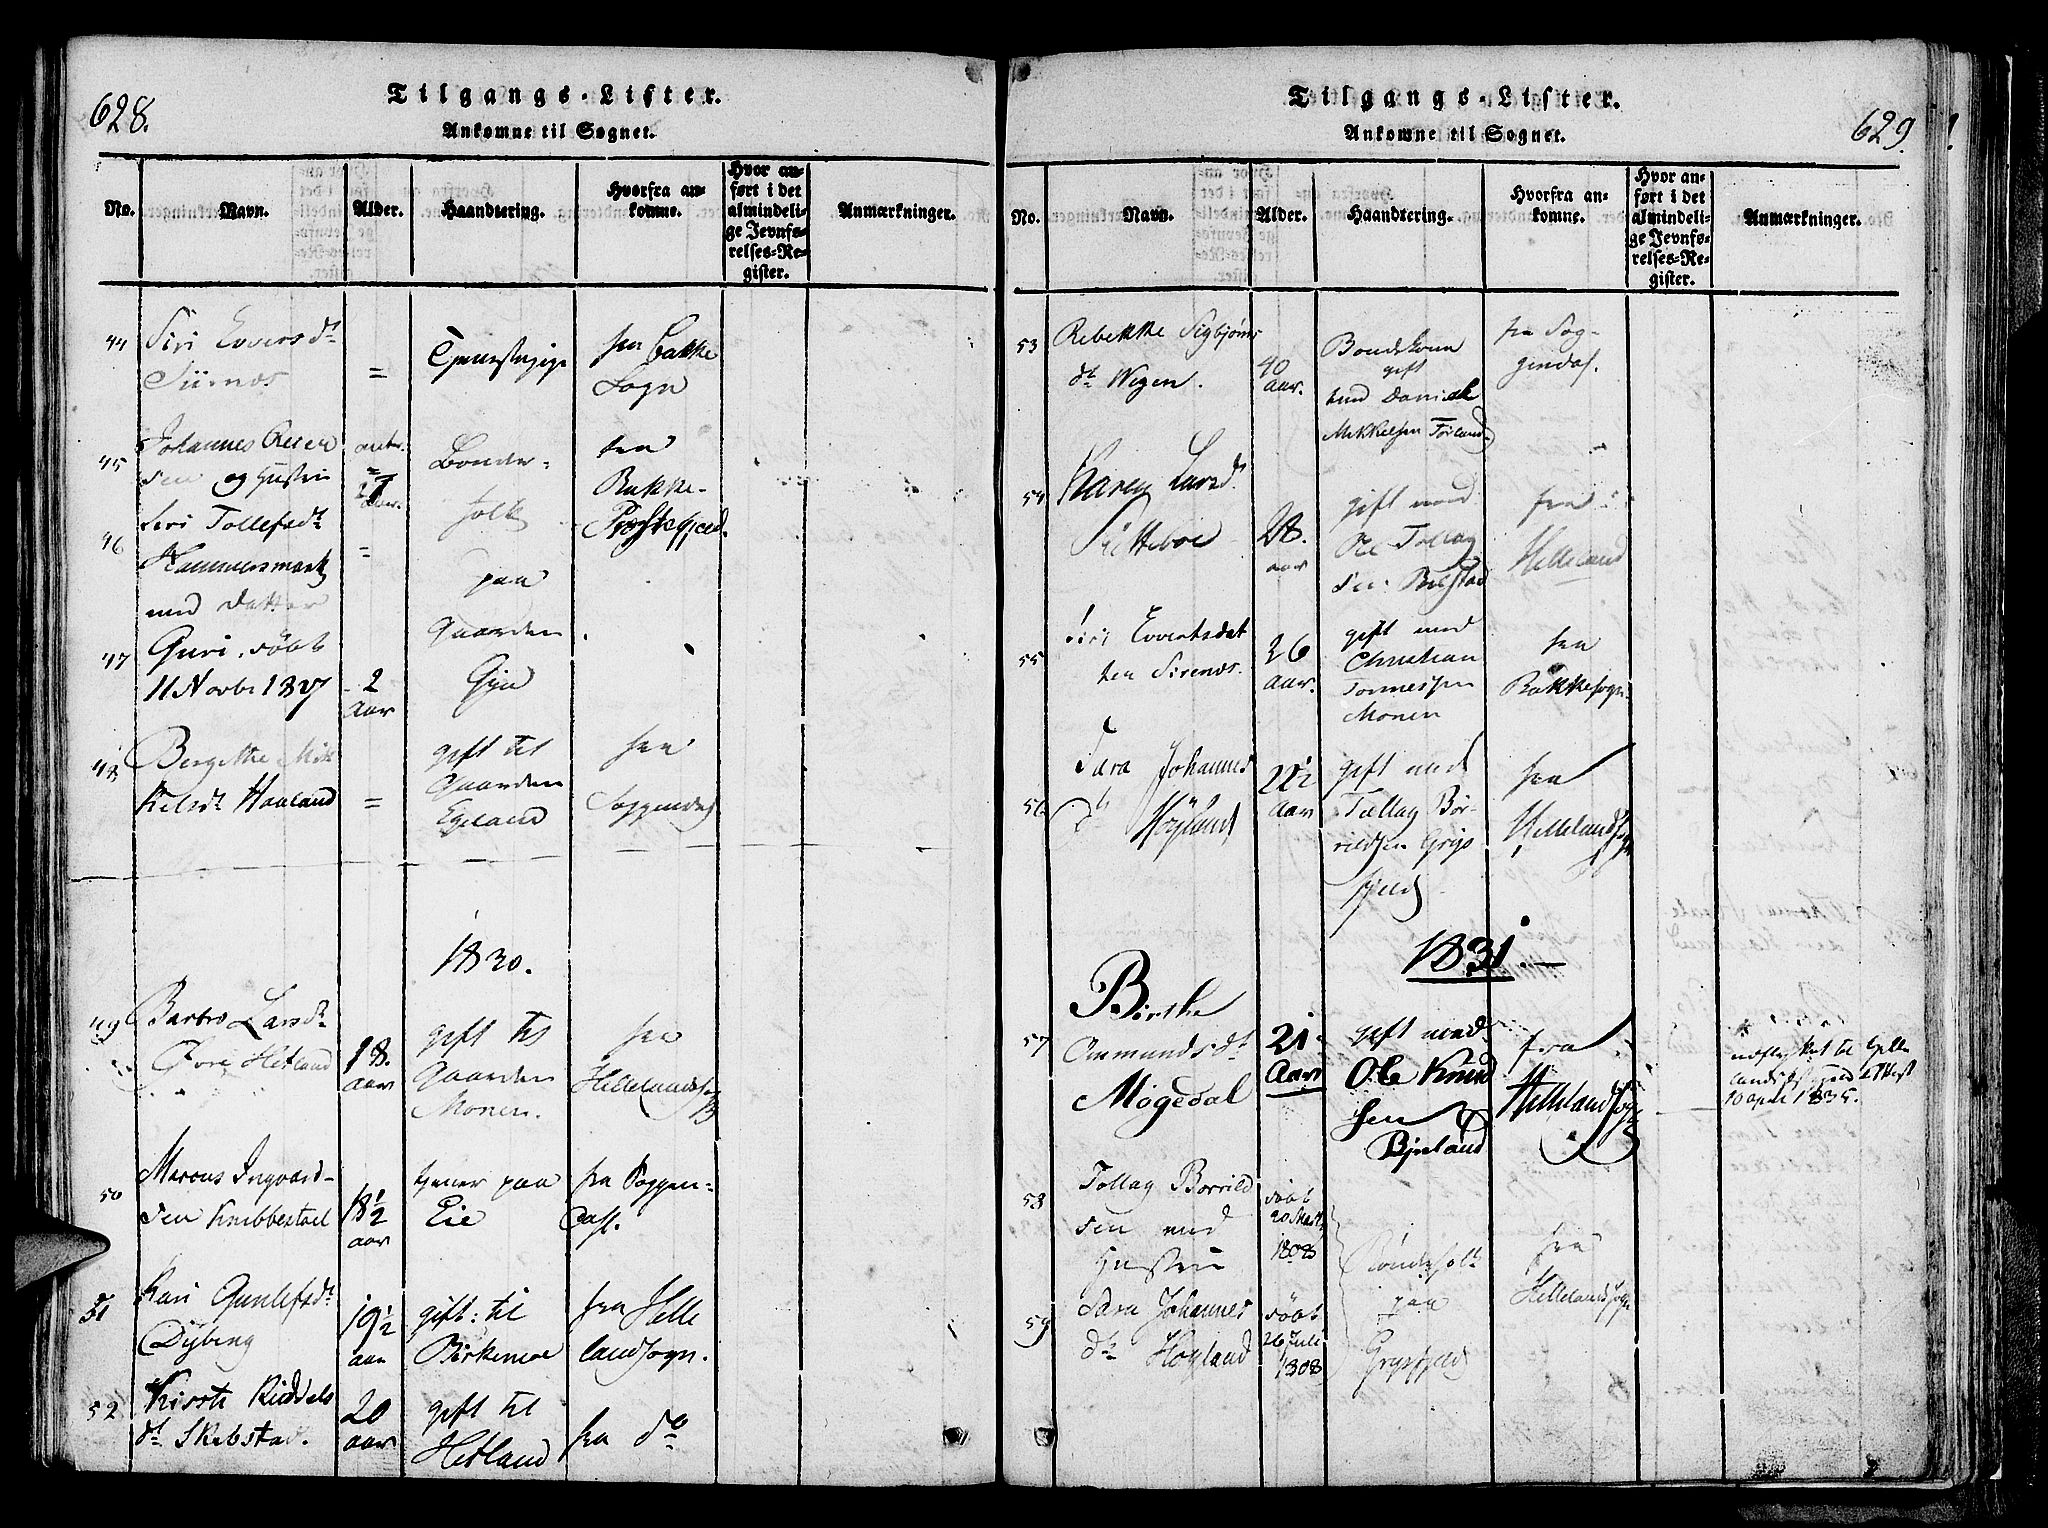 628.
Tilgangs-Lister.
Ankomne til Sognet.
No.
Navn.
Alder.
Haandtering.
Hvorfra an-
komne.
Hvor an-
ført i det
almindeli-
ge Jevnfø-
relses-Re-
gister.
Anmærkninger.
44
Siri Eversdt
Siirnes
=
Tjenestepige
fra Bakke
Sogn
45
Johannes
sen og Hustru
Bonde-
folk
paa
Gaarden
Gya
fra
Bakke-
Præstegjeld.
46
Siri Tollefsdt
Hammersmark
med Datter
=
47
Guri, døbt
11 Novbr 1827
2
Aar
48
Bergitte Mik
kelsdt Haaland
=
gift til
Gaarden
Egeland
fra
Soggendal
1830.
49
Barbro Larsdt
Øvre Hetland
18.
aar
gift til
Gaarden
Monen.
fra
Hellelandssogn
50
Marcus Ingvard-
sen Knibbestoel
18½
aar
tjener paa
Eie
fra Soggen-
dahl.
51
Kari Gunlefsdt
Dyberg
19½
aar
gift: til
Birkemoe
fra Helle
landsogn.
52
Kirsti Riddels
dt Skebstad.
20
aar
gift til
Hetland
fra do
629.
Tilgangs-Lister.
Ankomne til Sognet.
No.
Navn.
Alder.
Haandtering.
Hvorfra an-
komne.
Hvor an-
ført i det
almindeli-
ge Jevnfø-
relses-Re-
gister.
Anmærkninger.
53
Rebekke Sigbjørns
dt Wegen.
40
aar.
Bondekone
gift
med Daniel
Mikkelsen Torland
fra Sog-
gendal.
54
Karen Larsd.
28.
aar
gift med
Ole Tollag
sen Bilstad
fra
Helleland
55
Siri Evertsdat
ter Sirenes.
26
aar.
gift med
Christian
Tonnessen
Monen
fra
Bakkesogn
56
Sara Johannes
dt Høyland
22½
Aar
gift med
Tollag Bør-
rildsen Grys
fjeld
fra
Hellelandssogn
1831.
57
Birthe
Ommundsdt
Mögedal
21
Aar
gift med
Ole Knud
sen
Bjeland
fra
Hellelandsogn
udflyttet til Helle
lands
10 april 1835.
58
Tollag Borrild
sen med
Hustru
døbt
20 Mart
1808
Bøndefolk
paa
Grysfjeld
fra
Hellelandssogn
59
Sara Johannes
dt Høyland
døbt
26 Juli
1808